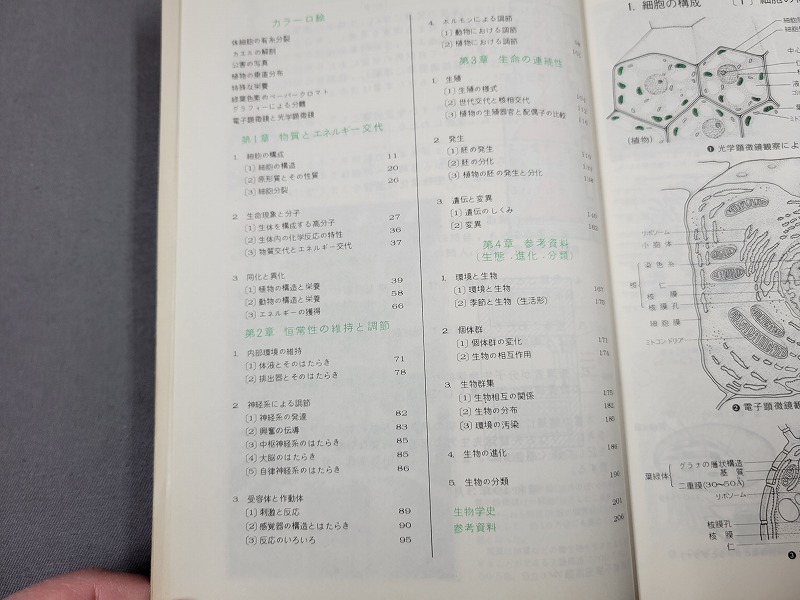 カラー口絵
体細胞の有糸分裂
カエルの解剖
公害の写真
植物の垂直分布
特殊な栄養
緑葉色素のペーパークロマト
グラフィーによる分離
電子顕微鏡と光学顕微鏡
第1章 物質とエネルギー交代
1. 細胞の構成
〔1〕細胞の構造 11
〔2〕原形質とその性質 20
〔3〕細胞分裂 26
2 生命現象と分子
〔1〕生体を構成する高分子 27
〔2〕生体内の化学反応の特性 36
〔3〕物質交代とエネルギー交代 37
3 同化と異化
〔1〕植物の構造と栄養 39
〔2〕動物の構造と栄養 58
〔3〕エネルギーの獲得 66
第2章 恒常性の維持と調節
1. 内部環境の維持
〔1〕体液とそのはたらき 71
〔2〕排出器とそのはたらき 78
2 神経系による調節
〔1〕神経系の発達 82
〔2〕興奮の伝導 83
〔3〕中枢神経系のはたらき 85
〔4〕大脳のはたらき 85
〔5〕自律神経系のはたらき 86
3. 受容体と作動体
〔1〕刺激と反応 89
〔2〕感覚器の構造とはたらき 90
〔3〕反応のいろいろ 95
4. ホルモンによる調節
〔1〕動物における調節 98
〔2〕植物における調節
第3章 生命の連続性
1. 生殖
〔1〕生殖の様式
〔2〕世代交代と核相交代
〔3〕植物の生殖器官と配偶子の比較
2. 発生
〔1〕胚の発生
〔2〕胚の分化
〔3〕植物の胚の発生と分化
3. 遺伝と変異
〔1〕遺伝のしくみ
〔2〕変異
第4章 参考資料
(生態.進化.分類)
1. 環境と生物
〔1〕環境と生物 167
〔2〕季節と生物(生活形) 170
2. 個体群
〔1〕個体群の変化 171
〔2〕生物の相互作用 174
3. 生物群集
〔1〕生物相互の関係 175
〔2〕生物の分布 182
〔3〕環境の汚染 185
4. 生物の進化 186
5. 生物の分類 190
生物学史 201
参考資料 206
1. 細胞の構成 〔1〕
(植物)
❶光学顕微鏡観察によ
リボソーム
小胞体
染色糸
核 仁
核膜
核膜孔
細胞膜
ミトコンドリア
❷電子顕微鏡観
葉緑体
グラナの層状構造
基質
二重膜(30〜50Å)
リボソーム
核膜孔
核膜
仁
❸